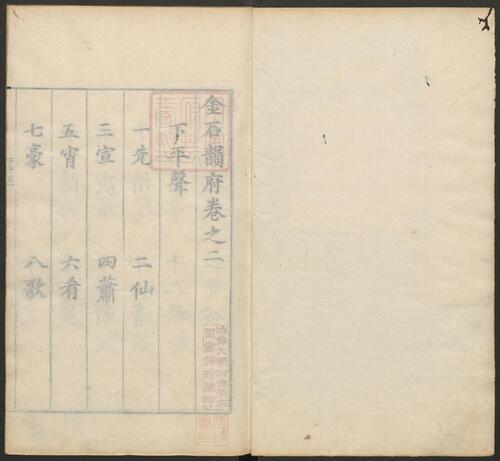 金石韻府卷之二
下平聲
一先 二仙
三宣 四蕭
五宵 六肴
七豪 八歌